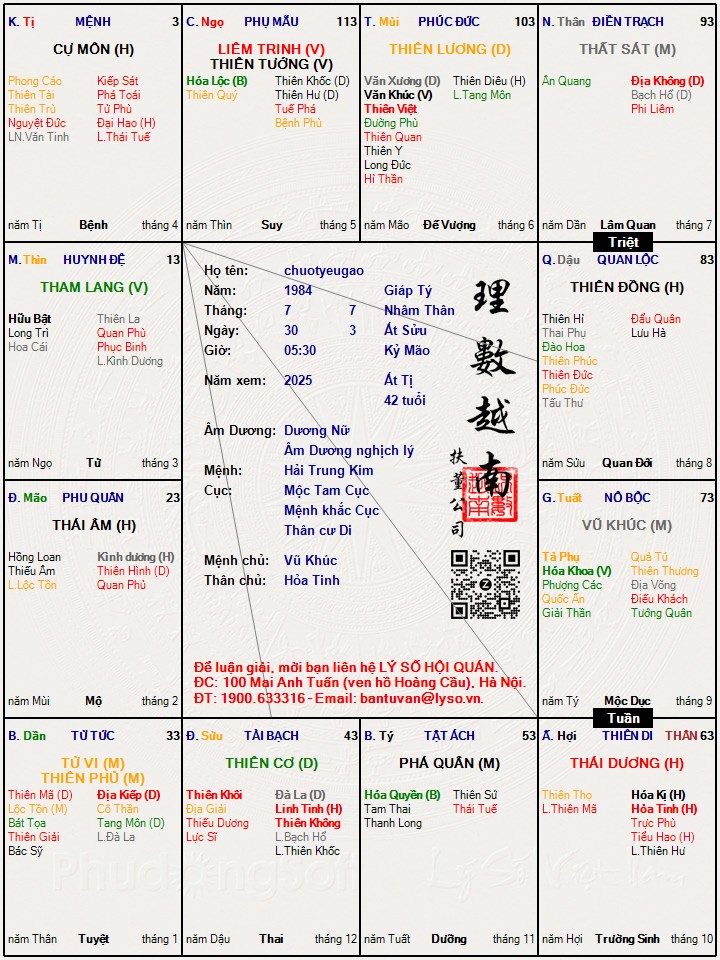 K. Tị MỆNH 3
CỰ MÔN (H)
Phong Cáo Kiếp Sát
Thiên Tài Phá Toái
Thiên Trù Tử Phù
Nguyệt Đức Đại Hao (H)
LN.Văn Tinh L.Thái Tuế
năm Tị Bệnh tháng 4
C. Ngọ PHỤ MẪU 113
LIÊM TRINH (V)
THIÊN TƯỚNG (V)
Hóa Lộc (B) Thiên Khốc (D)
Thiên Quý Thiên Hư (D)
Tuế Phá
Bệnh Phù
năm Thìn Suy tháng 5
T. Mùi PHÚC ĐỨC 103
THIÊN LƯƠNG (D)
Văn Xương (D) Thiên Diêu (H)
Văn Khúc (V) L.Tang Môn
Thiên Việt
Đường Phù
Thiên Quan
Thiên Y
Long Đức
Hỉ Thần
năm Mão Đế Vượng tháng 6
N. Thân ĐIỀN TRẠCH 93
THẤT SÁT (M)
Ân Quang Địa Không (D)
Bạch Hổ (D)
Phi Liêm
năm Dần Lâm Quan tháng 7
Triệt
M. Thìn HUYNH ĐỆ 13
THAM LANG (V)
Hữu Bật Thiên La
Long Trì Quan Phù
Hoa Cái Phục Binh
L.Kình Dương
năm Ngọ Tử tháng 3
Họ tên: chuotyeugao
Năm: 1984 Giáp Tý
Tháng: 7 7 Nhâm Thân
Ngày: 30 3 Ất Sửu
Giờ: 05:30 Kỷ Mão
Năm xem: 2025 Ất Tị
42 tuổi
Âm Dương: Dương Nữ
Âm Dương nghịch lý
Mệnh: Hải Trung Kim
Cục: Mộc Tam Cục
Mệnh khắc Cục
Thân cư Di
Mệnh chủ: Vũ Khúc
Thân chủ: Hỏa Tinh
理數越南
扶董公司
Để luận giải, mời bạn liên hệ LÝ SỐ HỘI QUÁN.
ĐC: 100 Mai Anh Tuấn (ven hồ Hoàng Cầu), Hà Nội.
ĐT: 1900.633316 - Email: bantuvan@lyso.vn.
Q. Dậu QUAN LỘC 83
THIÊN ĐỒNG (H)
Thiên Hỉ Đẩu Quân
Thai Phụ Lưu Hà
Đào Hoa
Thiên Phúc
Thiên Đức
Phúc Đức
Tấu Thư
năm Sửu Quan Đới tháng 8
Đ. Mão PHU QUÂN 23
THÁI ÂM (H)
Hồng Loan Kình dương (H)
Thiếu Âm Thiên Hình (D)
L.Lộc Tồn Quan Phủ
năm Mùi Mộ tháng 2
G. Tuất NÔ BỘC 73
VŨ KHÚC (M)
Tả Phụ Quả Tú
Hóa Khoa (V) Thiên Thương
Phượng Các Địa Võng
Quốc Ấn Điếu Khách
Giải Thần Tướng Quân
năm Tý Mộc Dục tháng 9
Tuần
B. Dần TỬ TỨC 33
TỬ VI (M)
THIÊN PHỦ (M)
Thiên Mã (D) Địa Kiếp (D)
Lộc Tồn (M) Cô Thần
Bát Tọa Tang Môn (D)
Thiên Giải L.Đà La
Bác Sỹ
năm Thân Tuyệt tháng 1
Đ. Sửu TÀI BẠCH 43
THIÊN CƠ (D)
Thiên Khôi Đà La (D)
Địa Giải Linh Tinh (H)
Thiếu Dương Thiên Không
Lực Sĩ L.Bạch Hổ
L.Thiên Khốc
năm Dậu Thai tháng 12
B. Tý TẬT ÁCH 53
PHÁ QUÂN (M)
Hóa Quyền (B) Thiên Sứ
Tam Thai Thái Tuế
Thanh Long
năm Tuất Dưỡng tháng 11
Ấ. Hợi THIÊN DI THÂN 63
THÁI DƯƠNG (H)
Thiên Thọ Hóa Kị (H)
L.Thiên Mã Hỏa Tinh (H)
Trực Phù
Tiểu Hao (H)
L.Thiên Hư
năm Hợi Trường Sinh tháng 10